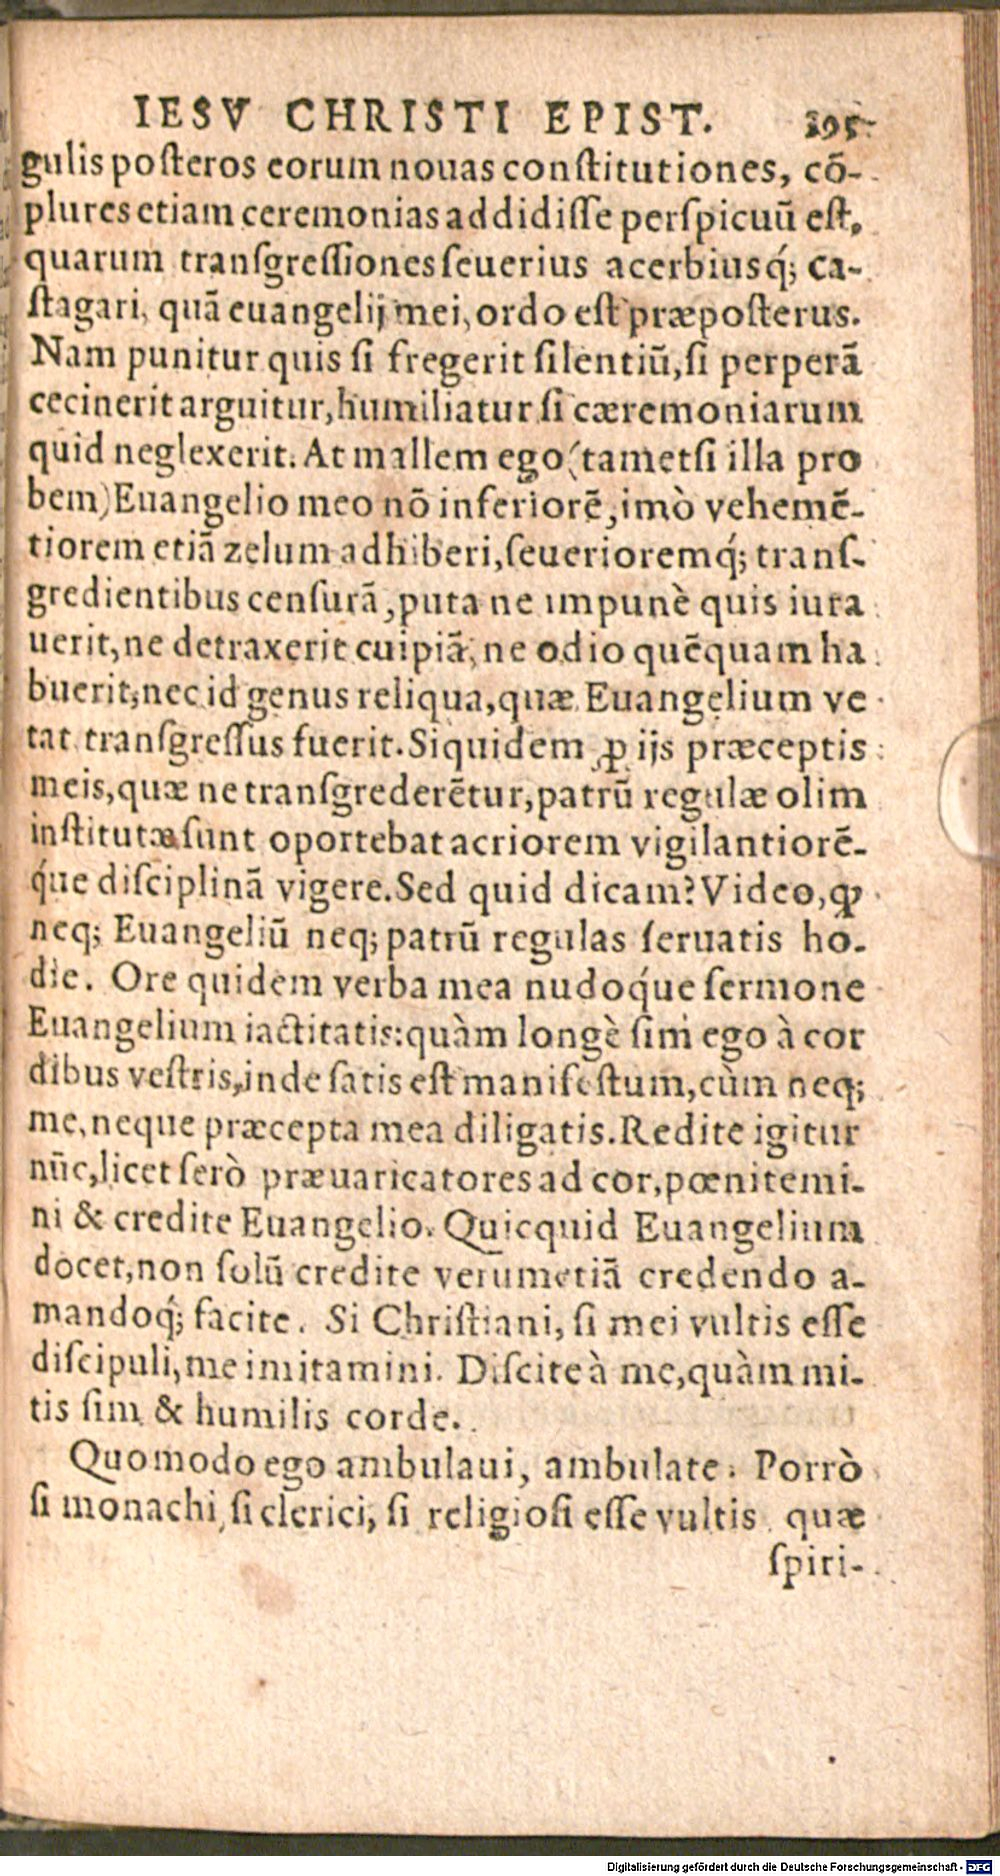 IESV CHRISTI EPIST. 195
gulis posteros eorum nouas constitutiones, cõ-
plures etiam ceremonias addidiſſe perſpicuũ eſt,
quarum tranſgreſſiones ſeuerius acerbiusq́; ca-
ſtagari, quã euangelij mei, ordo eſt præpoſterus.
Nam punitur quis ſi fregerit ſilentiũ, ſi perperã
cecinerit arguitur, humiliatur ſi cæremoniarum
quid neglexerit. At mallem ego (tametſi illa pro
bem) Euangelio meo nõ inferiorẽ, imò vehemẽ-
tiorem etiã zelum adhiberi, ſeuerioremq́; tranſ-
gredientibus cenſurã, puta ne impunè quis iura
uerit, ne detraxerit cuipiã, ne odio quẽquam ha
buerit, nec id genus reliqua, quæ Euangelium ve
tat tranſgreſſus fuerit. Siquidem ꝓ ijs præceptis
meis, quæ ne tranſgrederẽtur, patrũ regulæ olim
inſtitutæ ſunt oportebat acriorem vigilantiorẽ-
q́ue diſciplinã vigere. Sed quid dicam? Video, ꝙ
neq; Euangeliũ neq; patrũ regulas ſeruatis ho-
die. Ore quidem verba mea nudoq́ue ſermone
Euangelium iactitatis: quàm longè ſim ego à cor
dibus veſtris, inde ſatis eſt manifeſtum, cùm neq;
me, neque præcepta mea diligatis. Redite igitur
nũc, licet ſerò præuaricatores ad cor, pœnitemi-
ni & credite Euangelio. Quicquid Euangelium
docet, non ſolũ credite verumetiã credendo a-
mandoq́; facite. Si Chriſtiani, ſi mei vultis eſſe
diſcipuli, me imitamini. Diſcite à me, quàm mi-
tis ſim & humilis corde.
Quomodo ego ambulaui, ambulate. Porrò
ſi monachi, ſi clerici, ſi religioſi eſſe vultis quæ
ſpiri-
Digitalisierung gefördert durch die Deutsche Forschungsgemeinschaft - DFG